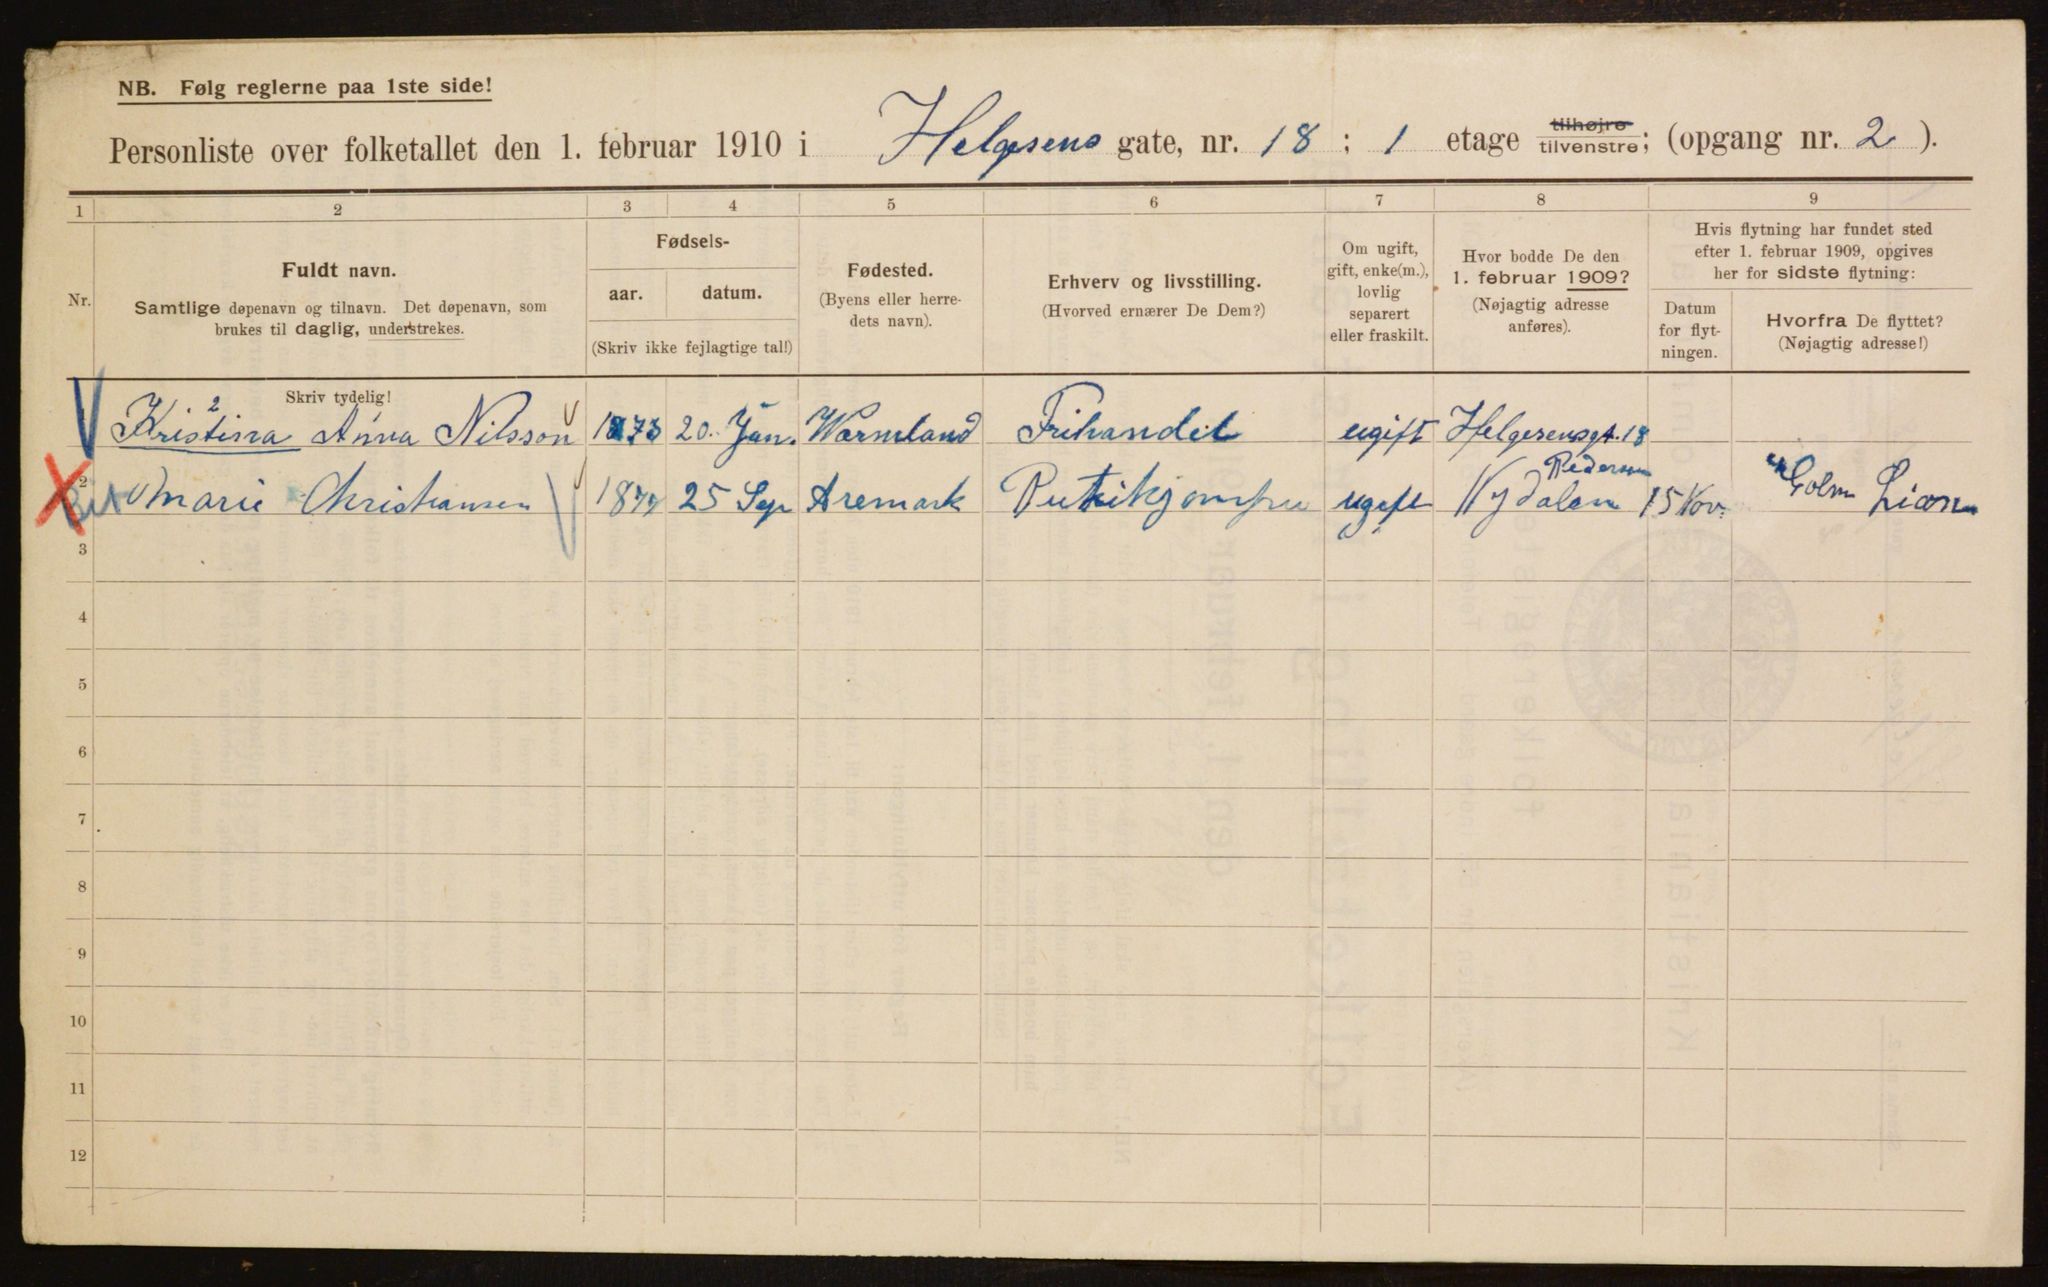 NB. Følg reglerne paa 1ste side!
Personliste over folketallet den 1. februar 1910 i Helgesens gate, nr. 18 ; 1 etage tilhøjre tilvenstre; (opgang nr. 2 ).
1 2 3 4 5 6 7 8 9
Nr.
Fuldt navn.
Samtlige døpenavn og tilnavn. Det døpenavn, som
brukes til daglig, understrekes.
Skriv tydelig!
Fødsels-
aar. datum.
(Skriv ikke fejlagtige tal!)
Fødested.
(Byens eller herre-
dets navn).
Erhverv og livsstilling.
(Hvorved ernærer De Dem?)
Om ugift,
gift, enke(m.),
lovlig
separert
eller fraskilt.
Hvor bodde De den
1. februar 1909?
(Nøjagtig adresse
anføres).
Hvis flytning har fundet sted
efter 1. februar 1909, opgives
her for sidste flytning:
Datum
for flyt-
ningen.
Hvorfra De flyttet?
(Nøjagtig adresse!)
1 Kristina Anna Nilsson 1873 20. Jan. Wærmland Frihandel ugift Helgesensgt. 18
2 Marie Christiansen 25 Sep Aremark ugift Nydalen Pedersen 15 Nov.
3
4
5
6
7
8
9
10
11
12